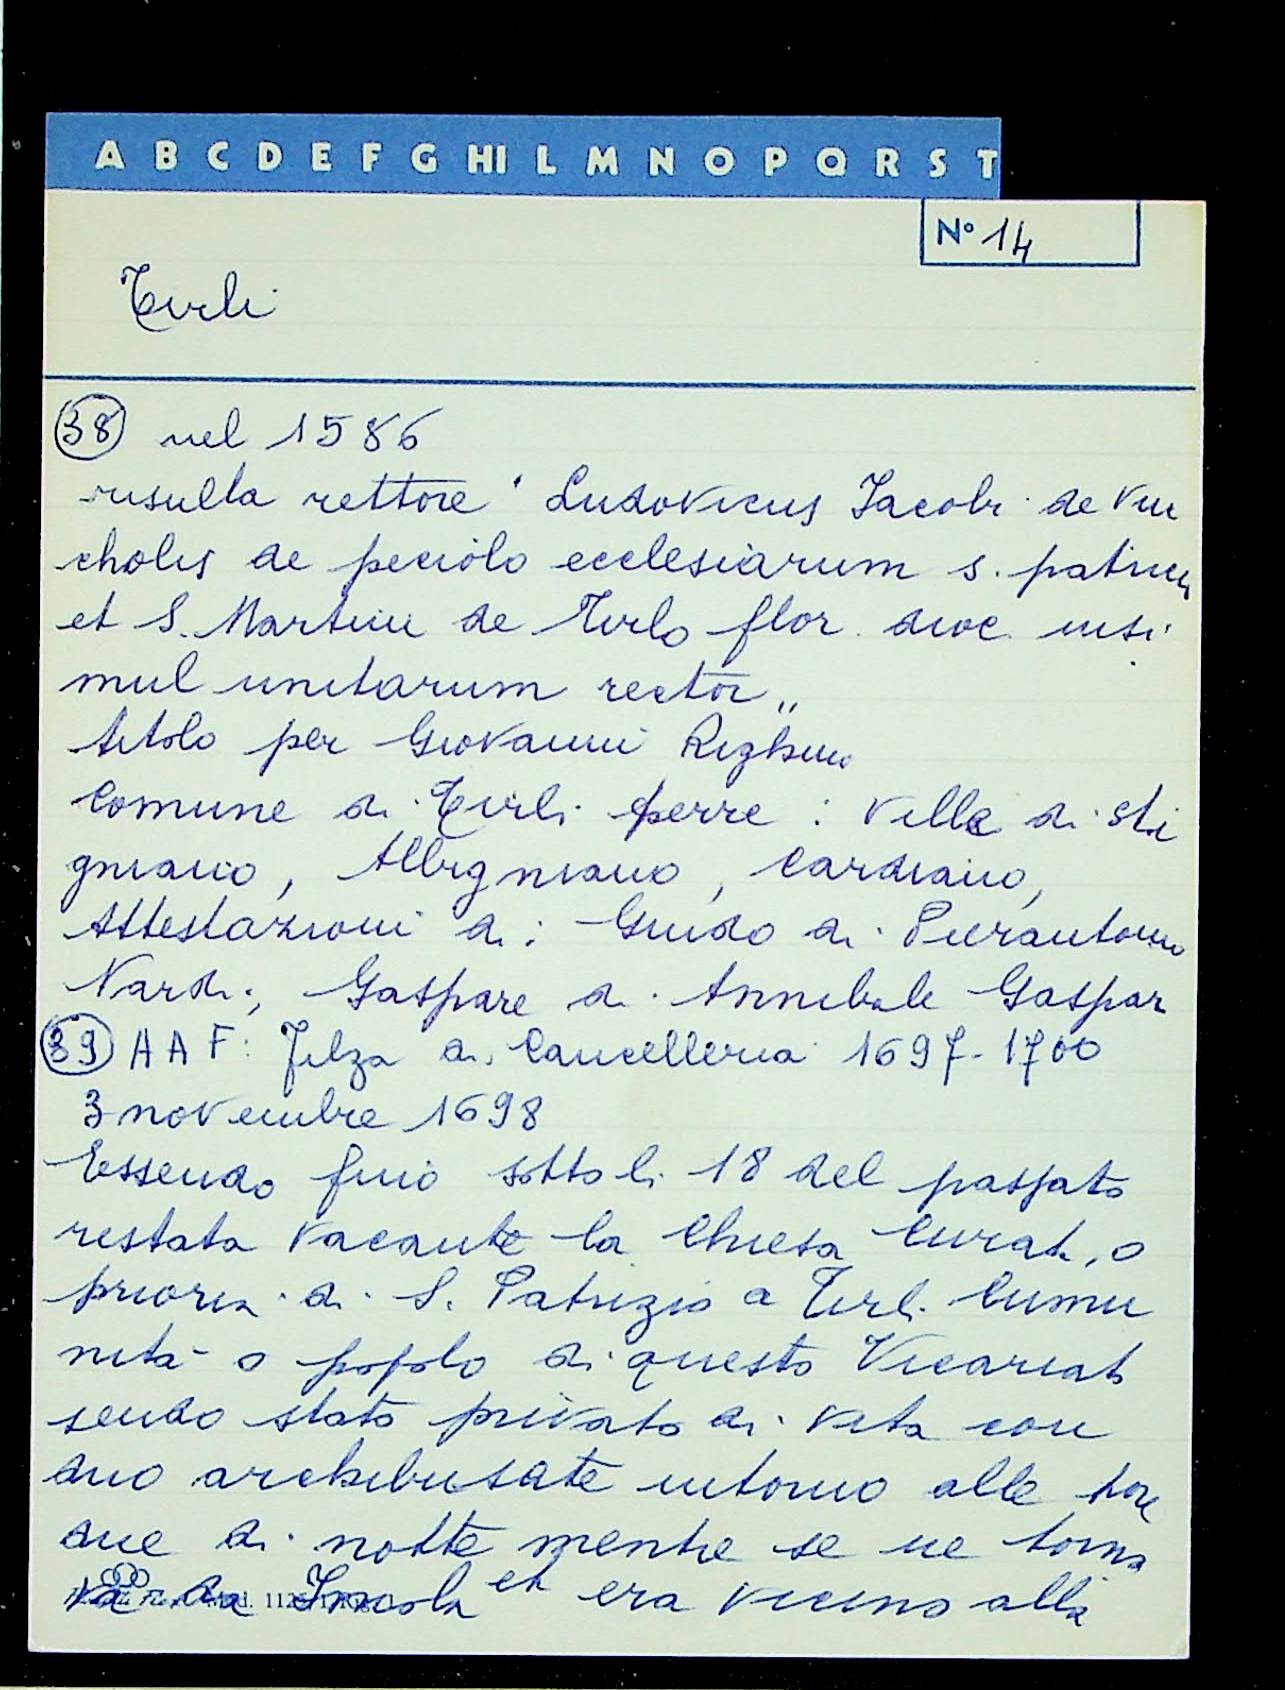 A B C D E F G HI L M N O P Q R S T
N° 14
Tirli
38 nel 1586
risulta rettore "Ludovicus Jacobi de Vin
cholis de peciolo ecclesiarum s. patricii
et S. Martini de Tirlo flor. dioc. insi
mul unitarum rector"
titolo per Giovanni Righini
Comune di Tirli perre: Ville di Sti
gniano, Albigniano, Cardiano,
Attestazioni di: Guido di Pierantonio
Nardi; Gaspare di Annibale Gaspar
39 AAF: Filza di Cancelleria 1697-1700
3 novembre 1698
Essendo fino sotto li 18 del passato
restata vacante la Chiesa Curata, o
prioria di S. Patrizio a Tirli Cumu
nità o popolo di questo Vicariato
sendo stato privato di vita con
due archibusate intorno alle hore
due di notte mentre se ne torna
va da Imola et era vicino alla